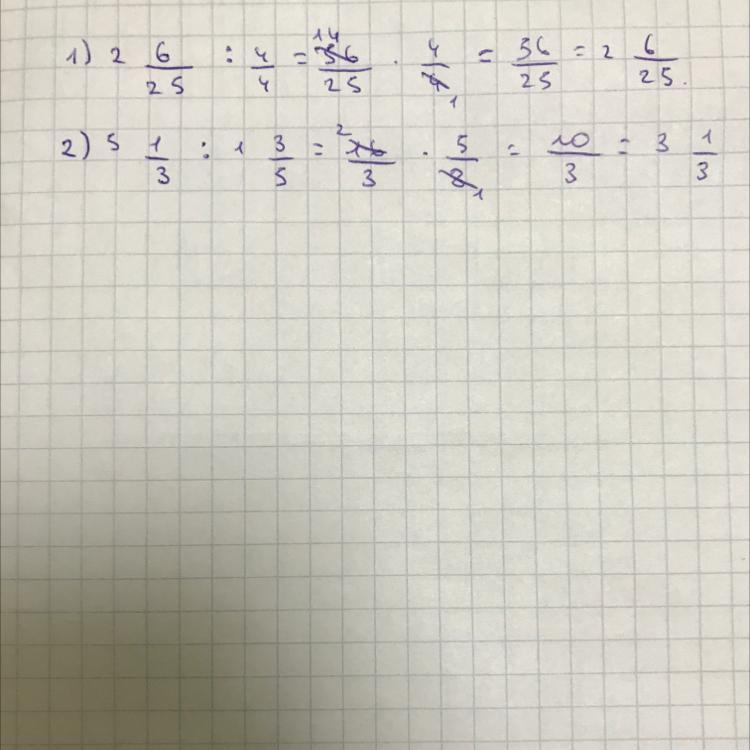 1) 2 6/25 : 4/4 = 14 56/25 · 4/4 1 = 56/25 = 2 6/25.
2) 5 1/3 : 1 3/5 = 2 16/3 · 5/8 1 = 10/3 = 3 1/3